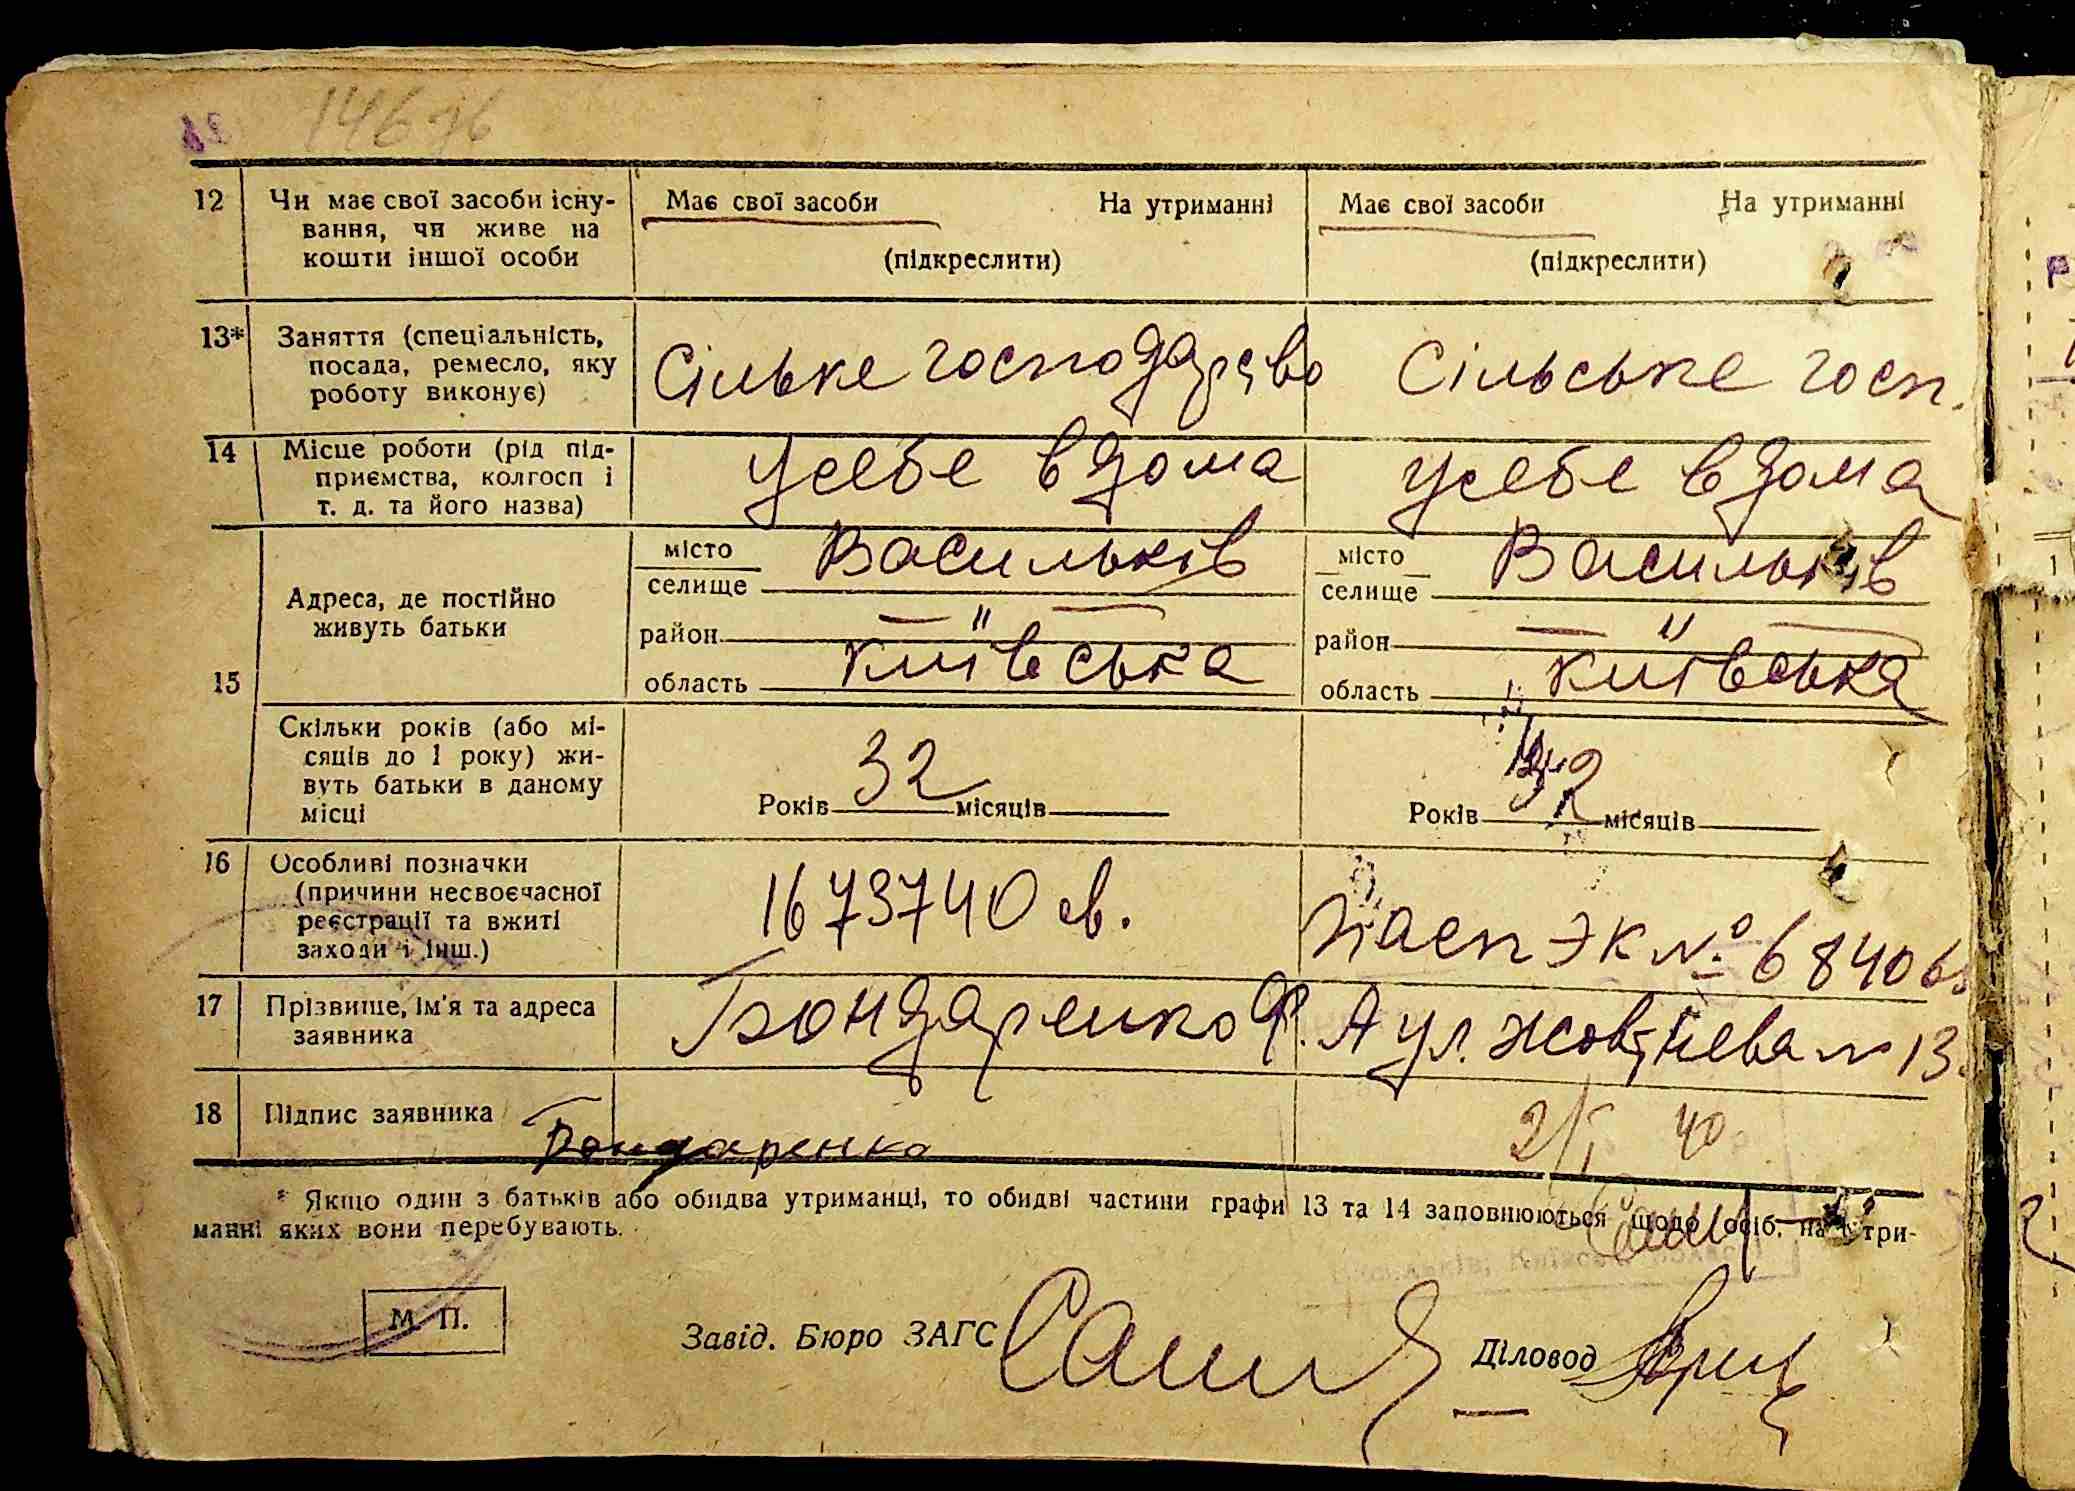 146 зв
12 Чи має свої засоби існу-
вання, чи живе на
кошти іншої особи
Має свої засоби На утриманні
(підкреслити)
Має свої засоби На утриманні
(підкреслити)
13* Заняття (спеціальність,
посада, ремесло, яку
роботу виконує)
Сільке господарсіво
Сільське госп.
14 Місце роботи (рід під-
приємства, колгосп і
т. д. та його назва)
усебе вдома
усебе вдома
15 Адреса, де постійно
живуть батьки
місто
селище Васильків
район — " —
область київська
місто
селище Васильків
район — " —
область київська
Скільки років (або мі-
сяців до 1 року) жи-
вуть батьки в даному
місці
Років 32 місяців
Років 32 місяців
16 Особливі позначки
(причини несвоєчасної
реєстрації та вжиті
заходи і інш.)
1673740 св.
Пасп ЭК № 68406
17 Прізвище, ім'я та адреса
заявника
Бондаренко Ф. А ул. Жовтнева № 13.
18 Підпис заявника
Бондаренко
2/I 40
* Якщо один з батьків або обидва утриманці, то обидві частини графи 13 та 14 заповнюються щодо осіб, на утри-
манні яких вони перебувають.
М. П.
Завід. Бюро ЗАГС
Діловод